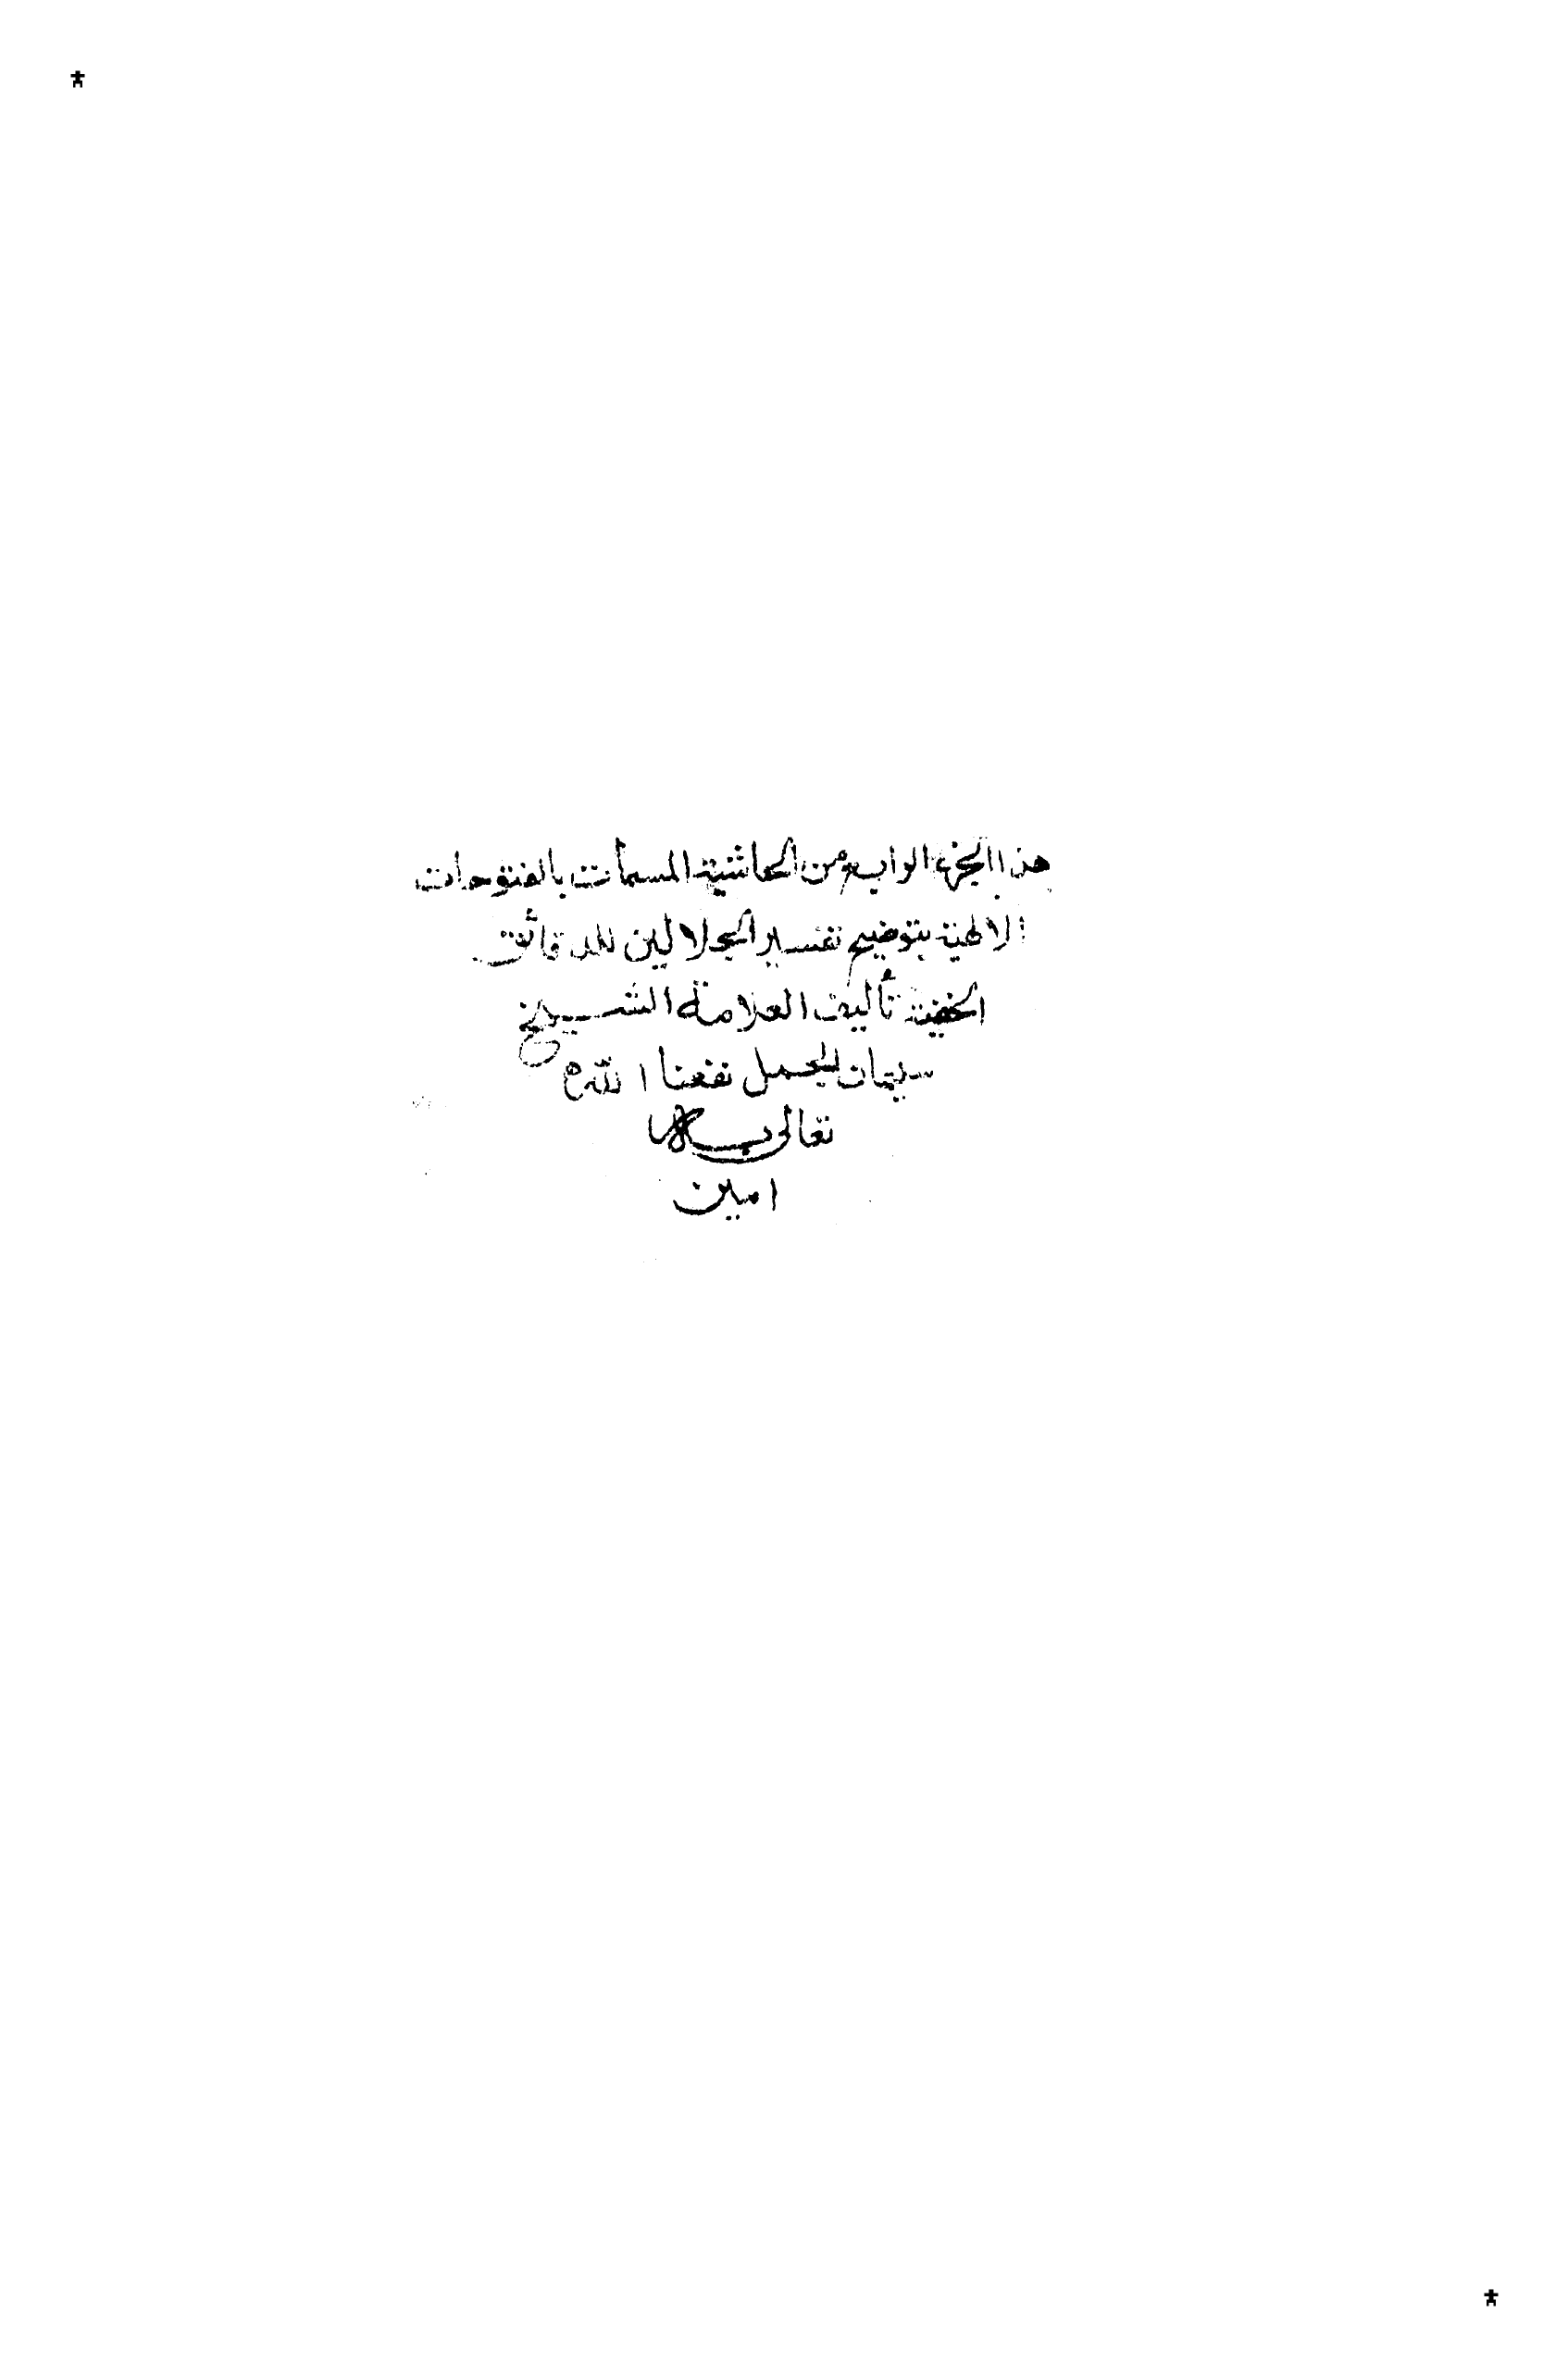 هذا الجزء الرابع من الحاشية المسمات بالفتوحات
الالهية بتوضيح تفسير الجلالين للدقائق
الخفية تأليف العلامة الشيخ
سليمان الجمل نفعنا الله
تعالى به
امين